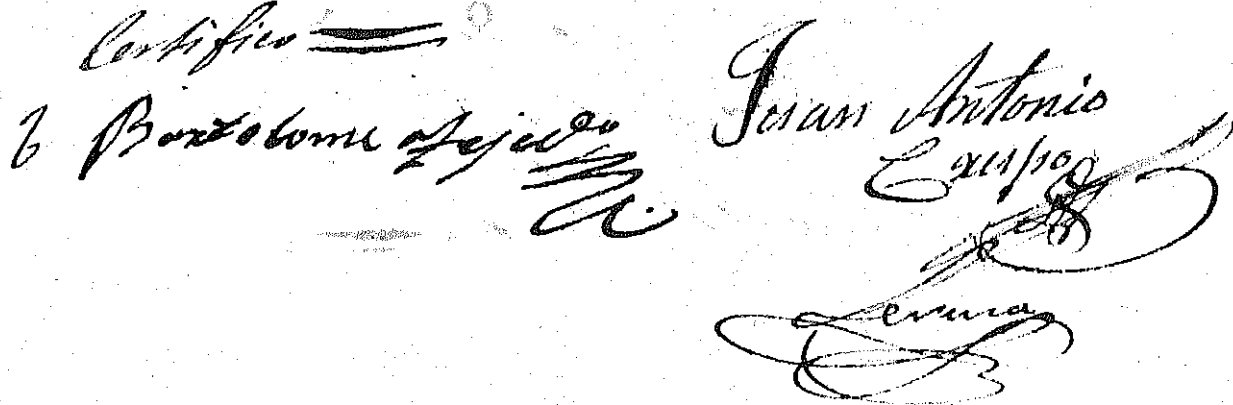 Certifico
Bartolome Tejedo
Juan Antonio
Crespo
Lerma